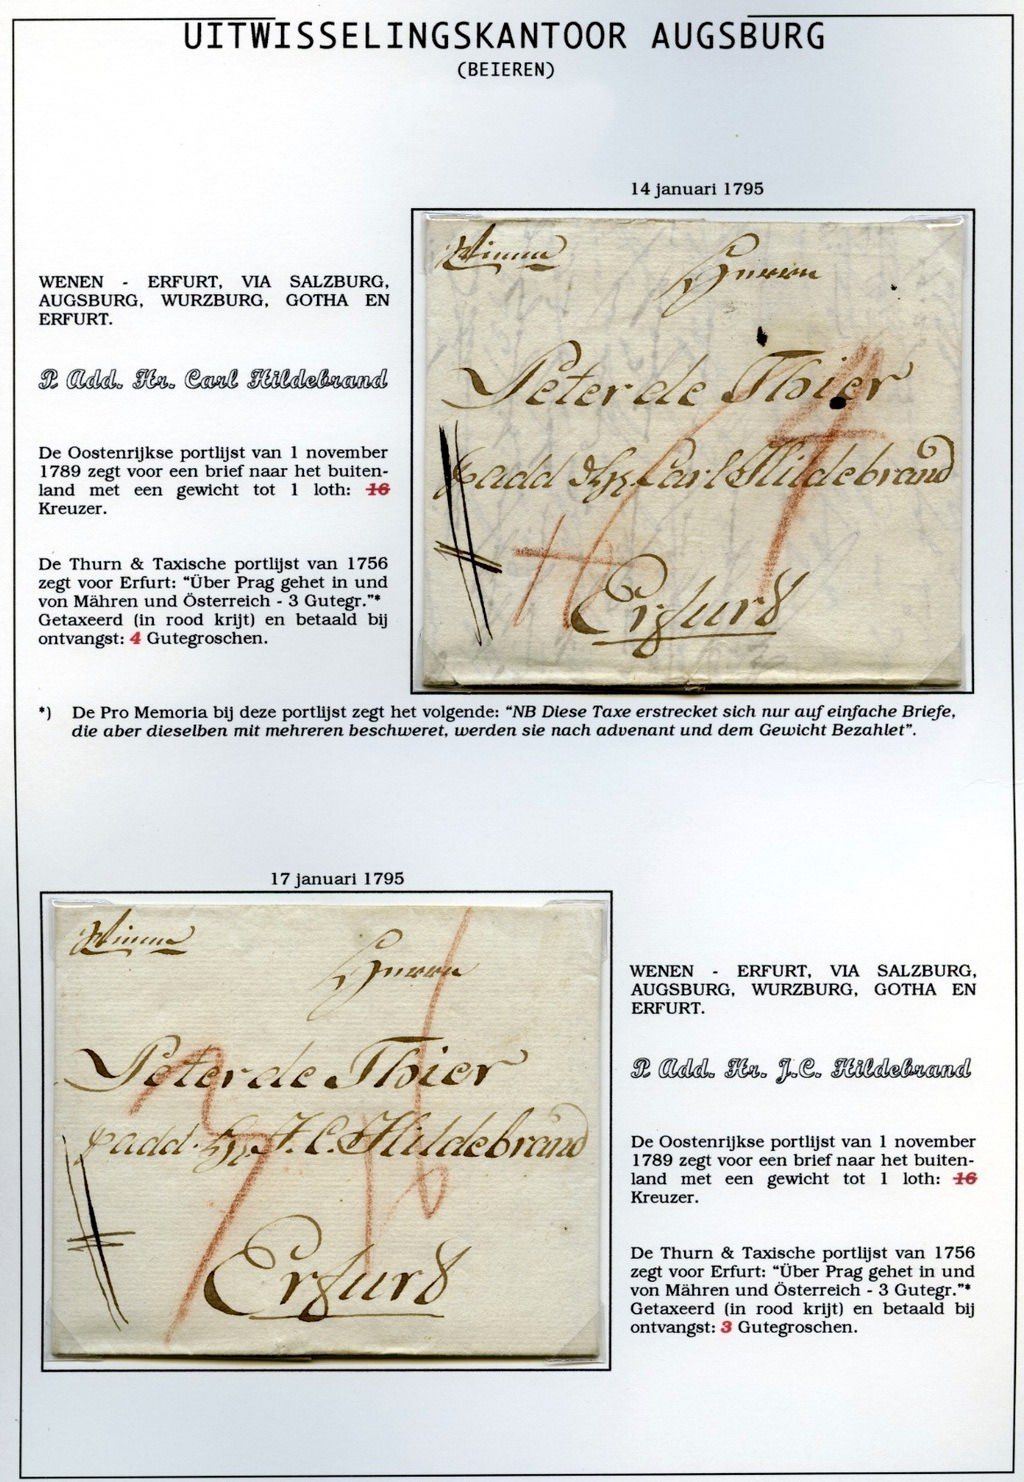 UITWISSELINGSKANTOOR AUGSBURG
(BEIEREN)
14 januari 1795
WENEN - ERFURT, VIA SALZBURG,
AUGSBURG, WURZBURG, GOTHA EN
ERFURT.
P. Add. Hr. Carl Hildebrand
De Oostenrijkse portlijst van 1 november
1789 zegt voor een brief naar het buiten-
land met een gewicht tot 1 loth: 16
Kreuzer.
De Thurn & Taxische portlijst van 1756
zegt voor Erfurt: “Über Prag gehet in und
von Mähren und Österreich - 3 Gutegr.”*
Getaxeerd (in rood krijt) en betaald bij
ontvangst: 4 Gutegroschen.
Herrn
Peter de Thier
p add Hr. Carl Hildebrand
Erfurd
4
*) De Pro Memoria bij deze portlijst zegt het volgende: “NB Diese Taxe erstrecket sich nur auf einfache Briefe,
die aber dieselben mit mehreren beschweret, werden sie nach advenant und dem Gewicht Bezahlet”.
17 januari 1795
Herrn
Peter de Thier
p add. Hr. J. C. Hildebrand
Erfurd
3
WENEN - ERFURT, VIA SALZBURG,
AUGSBURG, WURZBURG, GOTHA EN
ERFURT.
P. Add. Hr. J.C. Hildebrand
De Oostenrijkse portlijst van 1 november
1789 zegt voor een brief naar het buiten-
land met een gewicht tot 1 loth: 16
Kreuzer.
De Thurn & Taxische portlijst van 1756
zegt voor Erfurt: “Über Prag gehet in und
von Mähren und Österreich - 3 Gutegr.”*
Getaxeerd (in rood krijt) en betaald bij
ontvangst: 3 Gutegroschen.